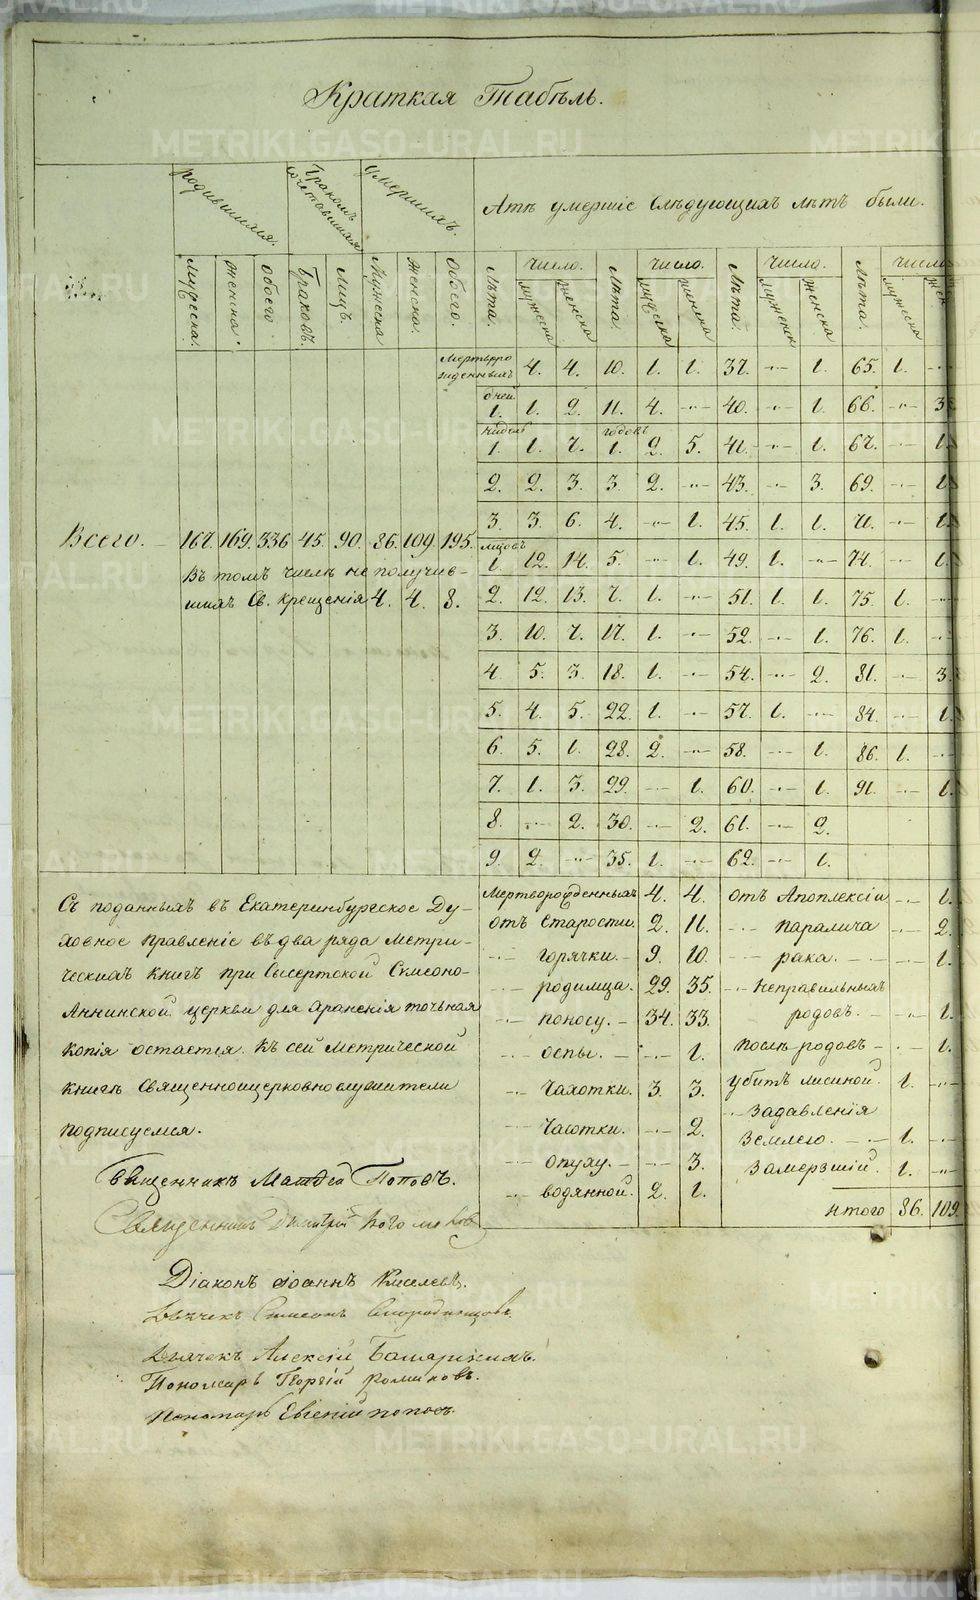 Краткая Табѣль.
родившихся. бракомъ сочетавшихся умершихъ. Атѣ умершіе слѣдующихъ лѣтъ были.
мужеска. женска. обоего. браковъ. лицъ. мужеска женска. обоего. лѣта. число. мужеска женска лѣта. число. мужеска женска лѣта. число. мужеска женска лѣта. число мужеска жен
мертьрро жденныхъ 4. 4. 10. 1. 1. 37. -"- 1. 65. 1. -"-
дней 1. 1. 2. 11. 4. -"- 40. -"- 1. 66. -"- 3
недель 1. 1. 7. годовъ 1. 2. 5. 41. -"- 1. 67. -"- 1.
2. 2. 3. 3. 2. -"- 43. -"- 3. 69. -"- 1.
3. 3. 6. 4. -"- 1. 45. 1. 1. 71. -"- 1.
Всего. 167. 169. 336 45. 90. 86. 109. 195.
мѣсцовъ 1. 12. 14. 5. -"- 1. 49. 1. -"- 74. -"- 1.
Въ томъ числѣ не получив-
шихъ Св. крещенія 4. 4. 8.
2. 12. 13. 7. 1. -"- 51. 1. 1. 75. 1. -"-
3. 10. 7. 17. 1. -"- 52. -"- 1. 76. 1. -"-
4. 5. 3. 18. 1. -"- 54. -"- 2. 81. -"- 3.
5. 4. 5. 22. 1. -"- 57. 1. -"- 84. -"- 1.
6. 5. 1. 28. 2. -"- 58. -"- 1. 86. 1. -"-
7. 1. 3. 29. -"- 1. 60. -"- 1. 91. -"- 1.
8. -"- 2. 30. -"- 2. 61. -"- 2.
9. 2. -"- 35. 1. -"- 62. -"- 1.
Съ поданныхъ въ Екатеринбургское Ду-
ховное Правленіе въ два ряда Метри-
ческихъ книгъ при Сысертской Симеоно-
Аннинской церкви для храненія точьная
копія остается. Къ сей метрической
книгѣ Священноицерковнослужители
подписуемся.
Священникъ Матѳей Поповъ.
Священникъ Димитрій
Діаконъ Іоаннъ Киселевъ.
Дьячекъ Симеонъ Смородинцовъ.
Дьячекъ Алексій
Пономарь Георгій Романовъ.
Пономарь Евгеній Поповъ.
Мертворожденныхъ 4. 4.
отъ старости. 2. 11.
-"- горячки. - 9. 10.
-"- родимца. 29. 35.
-"- поносу. - 34. 33.
-"- оспы. - -"- 1.
-"- чахотки. 3. 3.
-"- чаготки. -"- 2.
-"- опуху. - -"- 3.
-"- водянной. 2. 1.
отъ Апоплексіи -"- 1.
-"- паралича -"- 2.
-"- рака. - -"- 1.
-"- неправильныхъ
родовъ. - -"- 1.
послѣ родовъ - -"- 1.
убитъ лисиной. 1. -"-
-"- задавленія
землею. - 1. -"-
замерзшій. 1. -"-
итого 86. 109.
METRIKI.GASO-URAL.RU